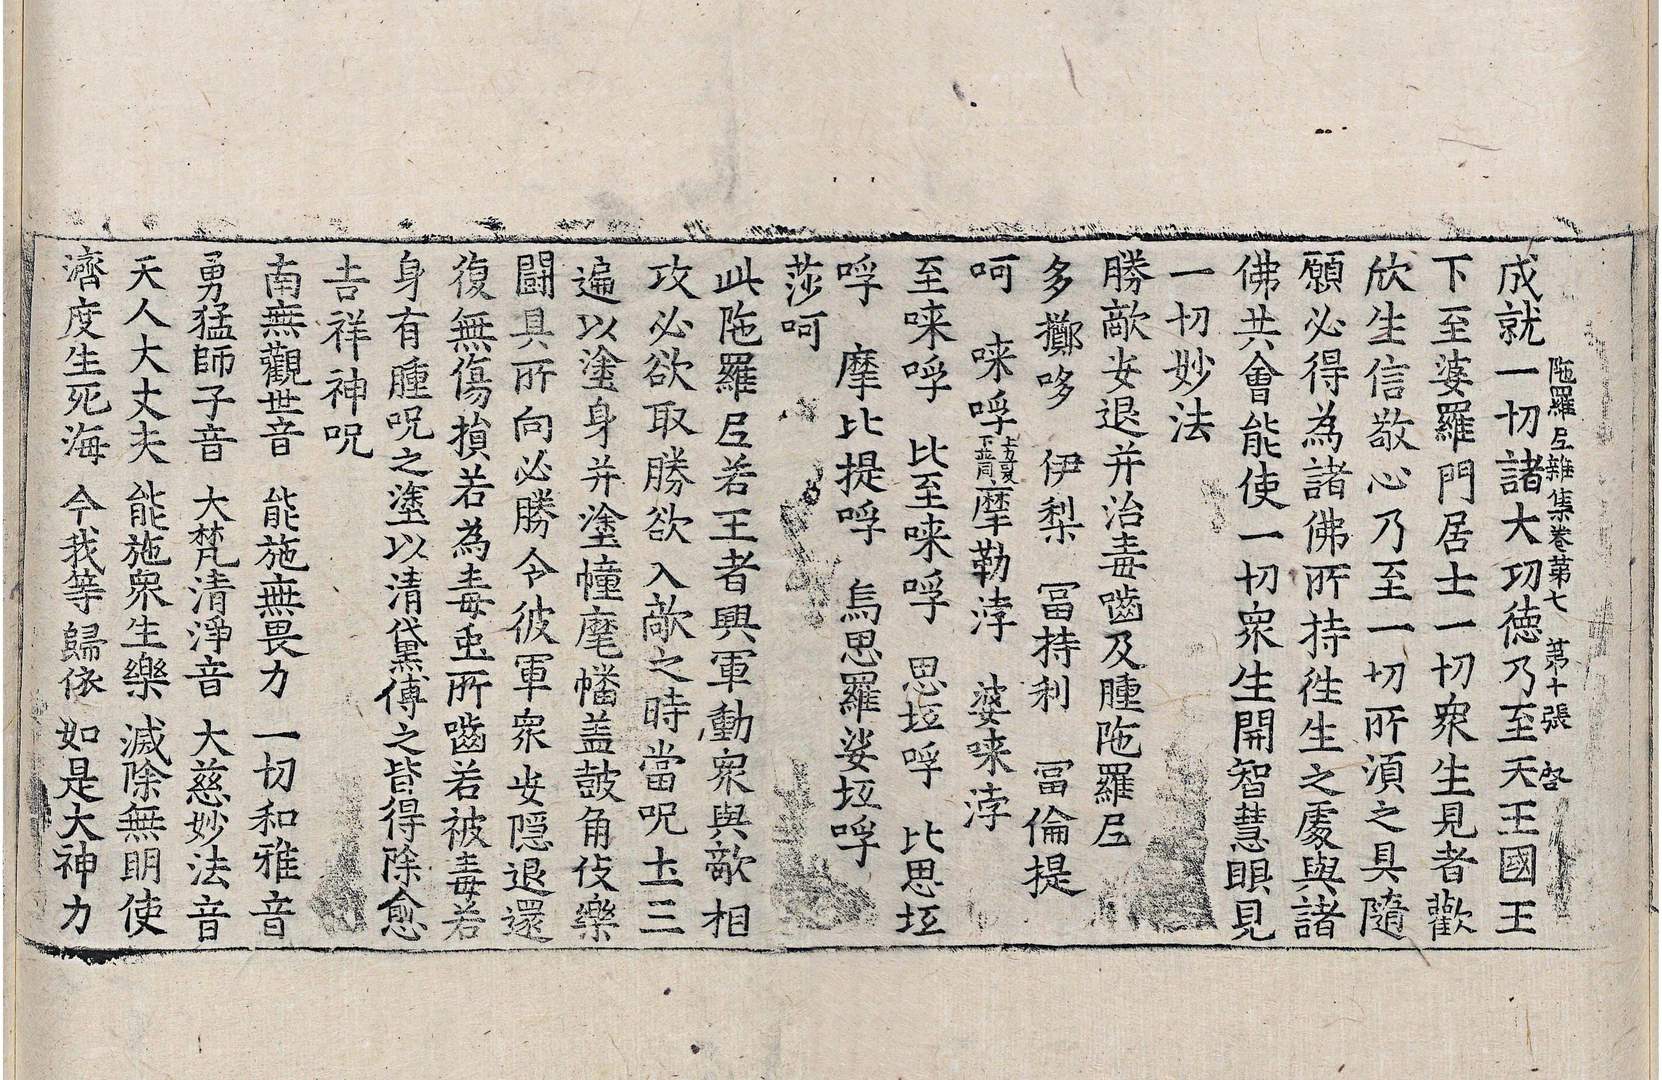 陁羅尼雜集卷第七　第十張　啓
成就一切諸大功德乃至天王國王
下至婆羅門居士一切衆生見者歡
欣生信敬心乃至一切所湏之具隨
願必得為諸佛所持徃生之處與諸
佛共會能使一切衆生開智慧眼見
一切妙法
勝敵安退并治毒嚙及腫陁羅尼
多擲哆　伊梨　冨持利　冨倫提
呵　唻呼　摩勒浡　婆唻浡
至唻呼　比至唻呼　思坘呼　比思坘
呼　摩比提呼　烏思羅娑坘呼
莎呵
此陁羅尼若王者興軍動衆與敵相
攻必欲取勝欲入敵之時當呪土三
遍以塗身并塗幢麾幡盖鼓角伎樂
闘具所向必勝令彼軍衆安隱退還
復無傷損若為毒虫所嚙若被毒若
身有腫呪之塗以清黛傅之皆得除愈
吉祥神呪
南無觀世音　能施無畏力　一切和雅音
勇猛師子音　大梵清淨音　大慈妙法音
天人大丈夫　能施衆生樂　滅除無明使
濟度生死海　今我等歸依　如是大神力